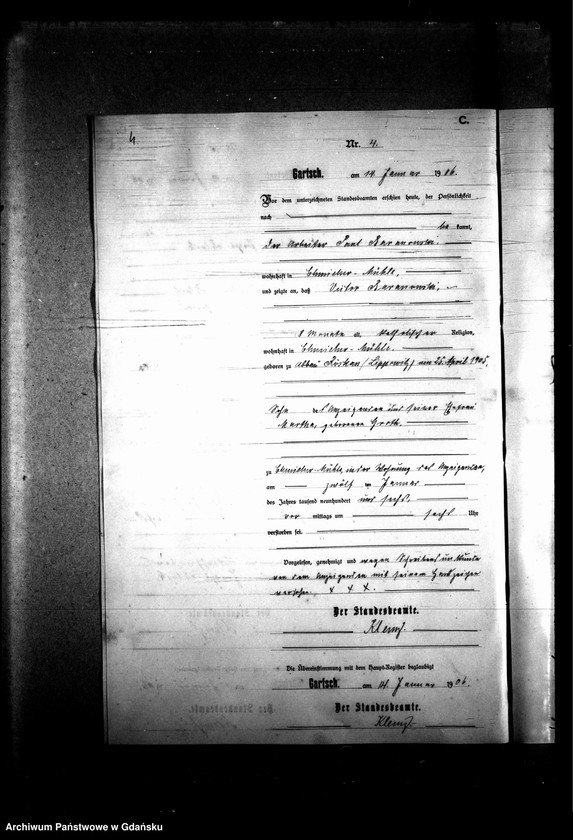 C.
4
Nr. 4.
Gartsch. am 14. Januar 1906.
Vor dem unterzeichneten Standesbeamten erschien heute, der Persönlichkeit
nach
be kannt,
der Arbeiter Paul
wohnhaft in Mühle,
und zeigte an, daß
8 Monate a. katholischer Religion,
wohnhaft in Mühle.
geboren zu Abbau am 25. April 1905,
Sohn des Anzeigenden und seiner Ehefrau
Martha, geborenen Groth.
zu Mühle, in der Wohnung des Anzeigenden,
am zwölf ten Januar
des Jahrs tausend neunhundert und sechs,
vor mittags um sechs Uhr
verstorben sei.
Vorgelesen, genehmigt und wegen Schreibensunkunde
von dem Anzeigenden mit seinem Handzeichen
versehen. x x x.
Der Standesbeamte.
Die Übereinstimmung mit dem Haupt-Register beglaubigt
Gartsch. am 14. Januar 1906.
Der Standesbeamte.
Archiwum Państwowe w Gdańsku